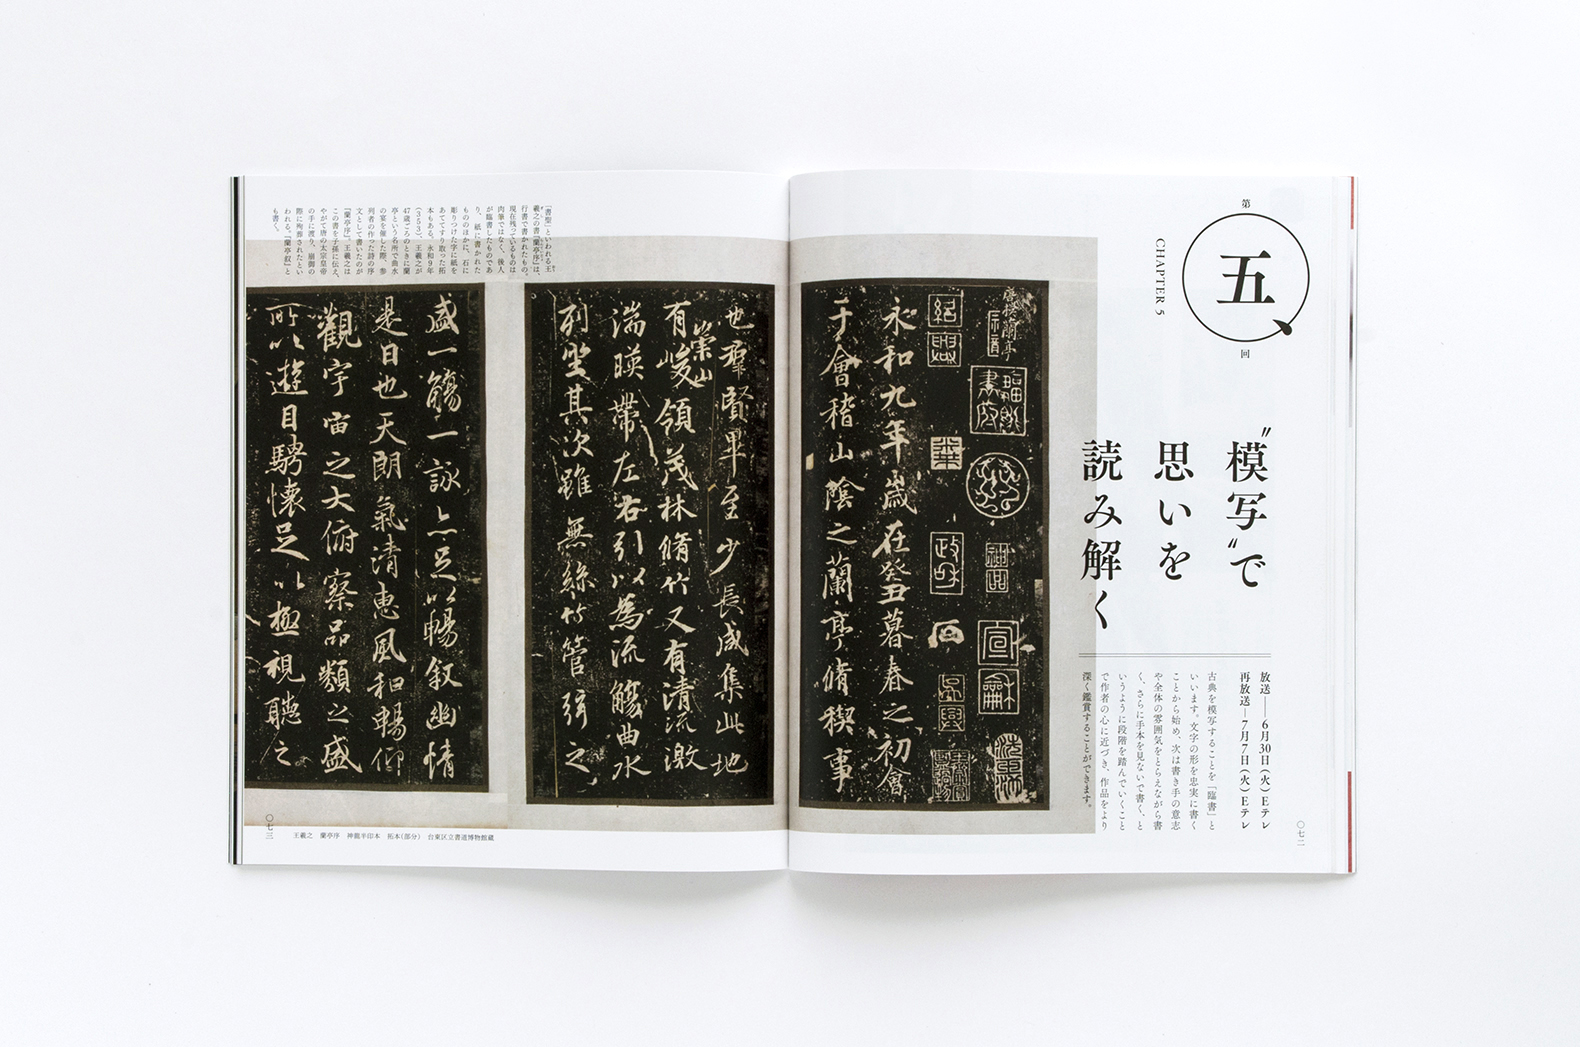 第
五、
回
CHAPTER 5
〝模写〟で
思いを
読み解く
放送——6月30日（火）Eテレ
再放送—7月7日（火）Eテレ
古典を模写することを「臨書」と
いいます。文字の形を忠実に書く
ことから始め、次は書き手の意志
や全体の雰囲気をとらえながら書
く、さらに手本を見ないで書く、と
いうように段階を踏んでいくこと
で作者の心に近づき、作品をより
深く鑑賞することができます。
〇七二
唐模蘭亭
永和九年歳在癸丑暮春之初會
于會稽山陰之蘭亭脩稧事
也羣賢畢至少長咸集此地
有崇山峻領茂林脩竹又有清流激
湍暎帶左右引以為流觴曲水
列坐其次雖無絲竹管弦之
盛一觴一詠亦足以暢叙幽情
是日也天朗氣清恵風和暢仰
觀宇宙之大俯察品類之盛
所以遊目騁懷足以極視聽之
「書聖」といわれる王
羲之の書『蘭亭序』は、
行書で書かれたもの。
現在残っているものは
肉筆ではなく、後人
が臨書したものであ
り、紙に書かれた
もののほかに、石に
彫りつけた字に紙を
あててすり取った拓
本もある。永和9年
（353）、王羲之が
47歳ごろのときに蘭
亭という名所で曲水
の宴を催した際、参
列者の作った詩の序
文として書いたのが
『蘭亭序』。王羲之は
この書を子孫に伝え、
やがて唐の太宗皇帝
の手に渡り、崩御の
際に殉葬されたとい
われる。『蘭亭叙』と
も書く。
王羲之　蘭亭序　神龍半印本　拓本（部分）　台東区立書道博物館蔵
〇七三